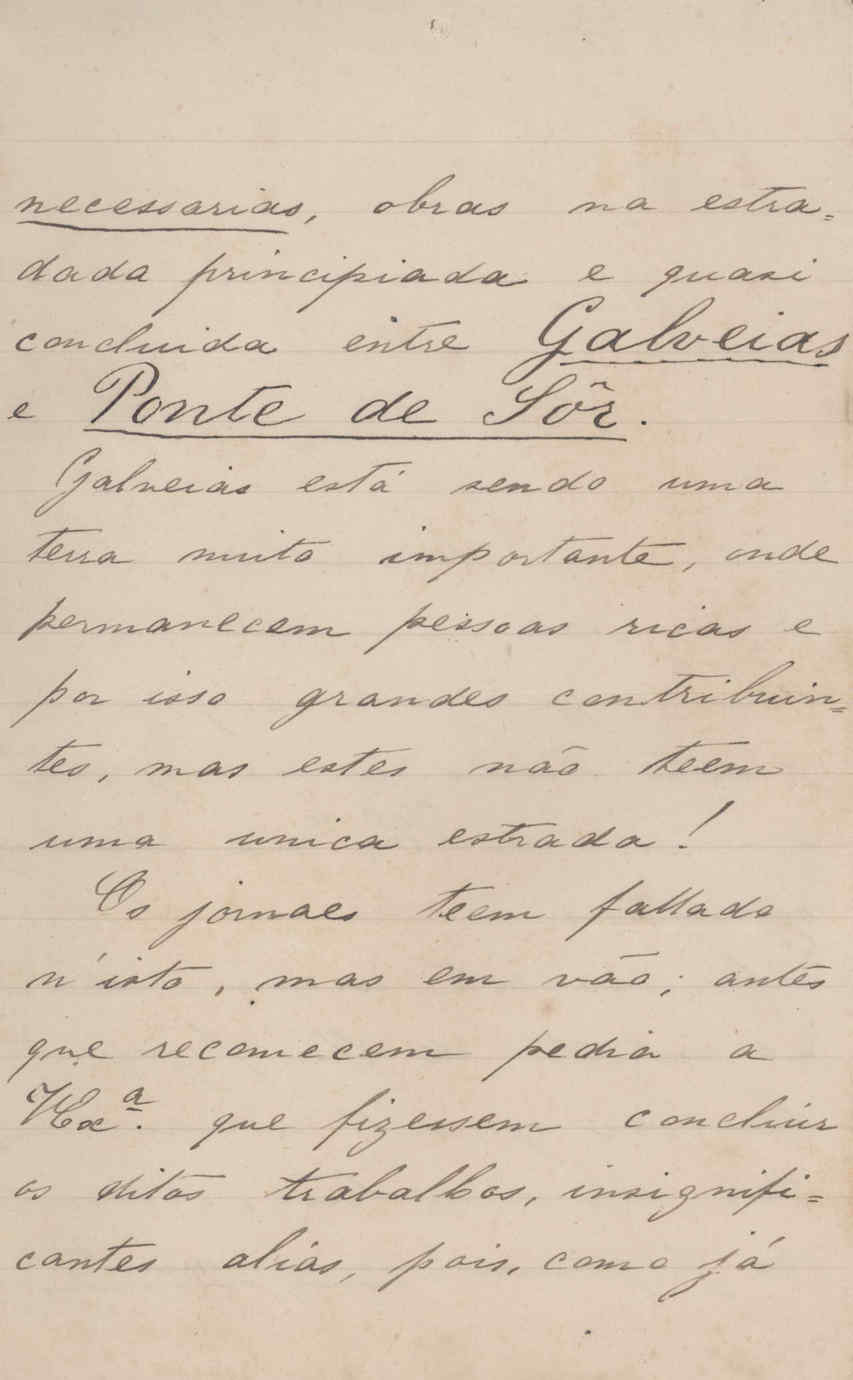 necessarias, obras na estra=
dada principiada e quasi
concluida entre Galveias
e Ponte de Sôr.
Galveias está sendo uma
terra muito importante, onde
permanecem pessoas ricas e
por isso grandes contribuin=
tes, mas estes não teem
uma unica estrada!
Os jornaes teem fallado
n'isto, mas em vão; antes
que recomecem pedia a
V Exª. que fizessem concluir
os ditos trabalhos, insignifi=
cantes aliás, pois, como já